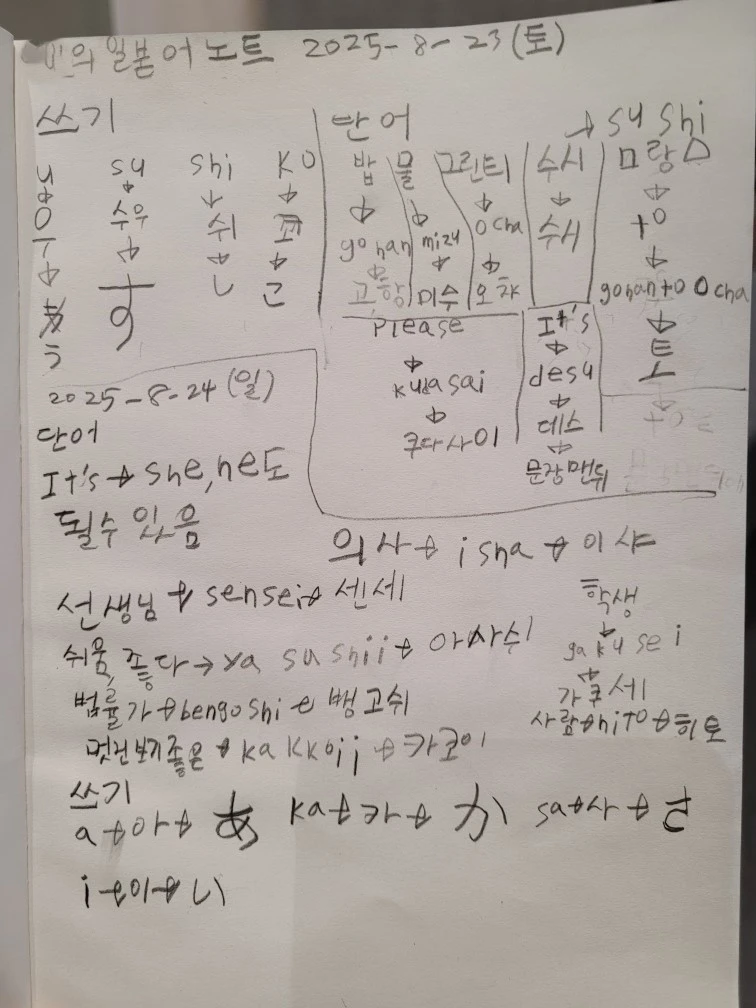 의 일본어 노트 2025-8-23(토)
쓰기
su → 수우 → す
shi → 쉬 → し
KO → 코 → こ
단어
밥 → gohan → 고항
물 → mizu → 미수
그린티 → ocha → 오챠
수시 → 수시
→ su shi
랑 → to → gohan to Ocha → と
Please → kudasai → 쿠다사이
It's → desu → 데스 → 문장맨뒤
2025-8-24(일)
단어
It's → she, he도
될수 있음
의사 → isha → 이샤
선생님 → sensei → 센세
학생 → gakusei → 가쿠세
쉬움, 좋다 → ya su shii → 야사수이
법률가 → bengoshi → 뱅고쉬
사람 → hito → 히토
멋진보기좋은 → ka kkoii → 카코이
쓰기
a → 아 → あ ka → 카 → か sa → 사 → さ
i → 이 → い